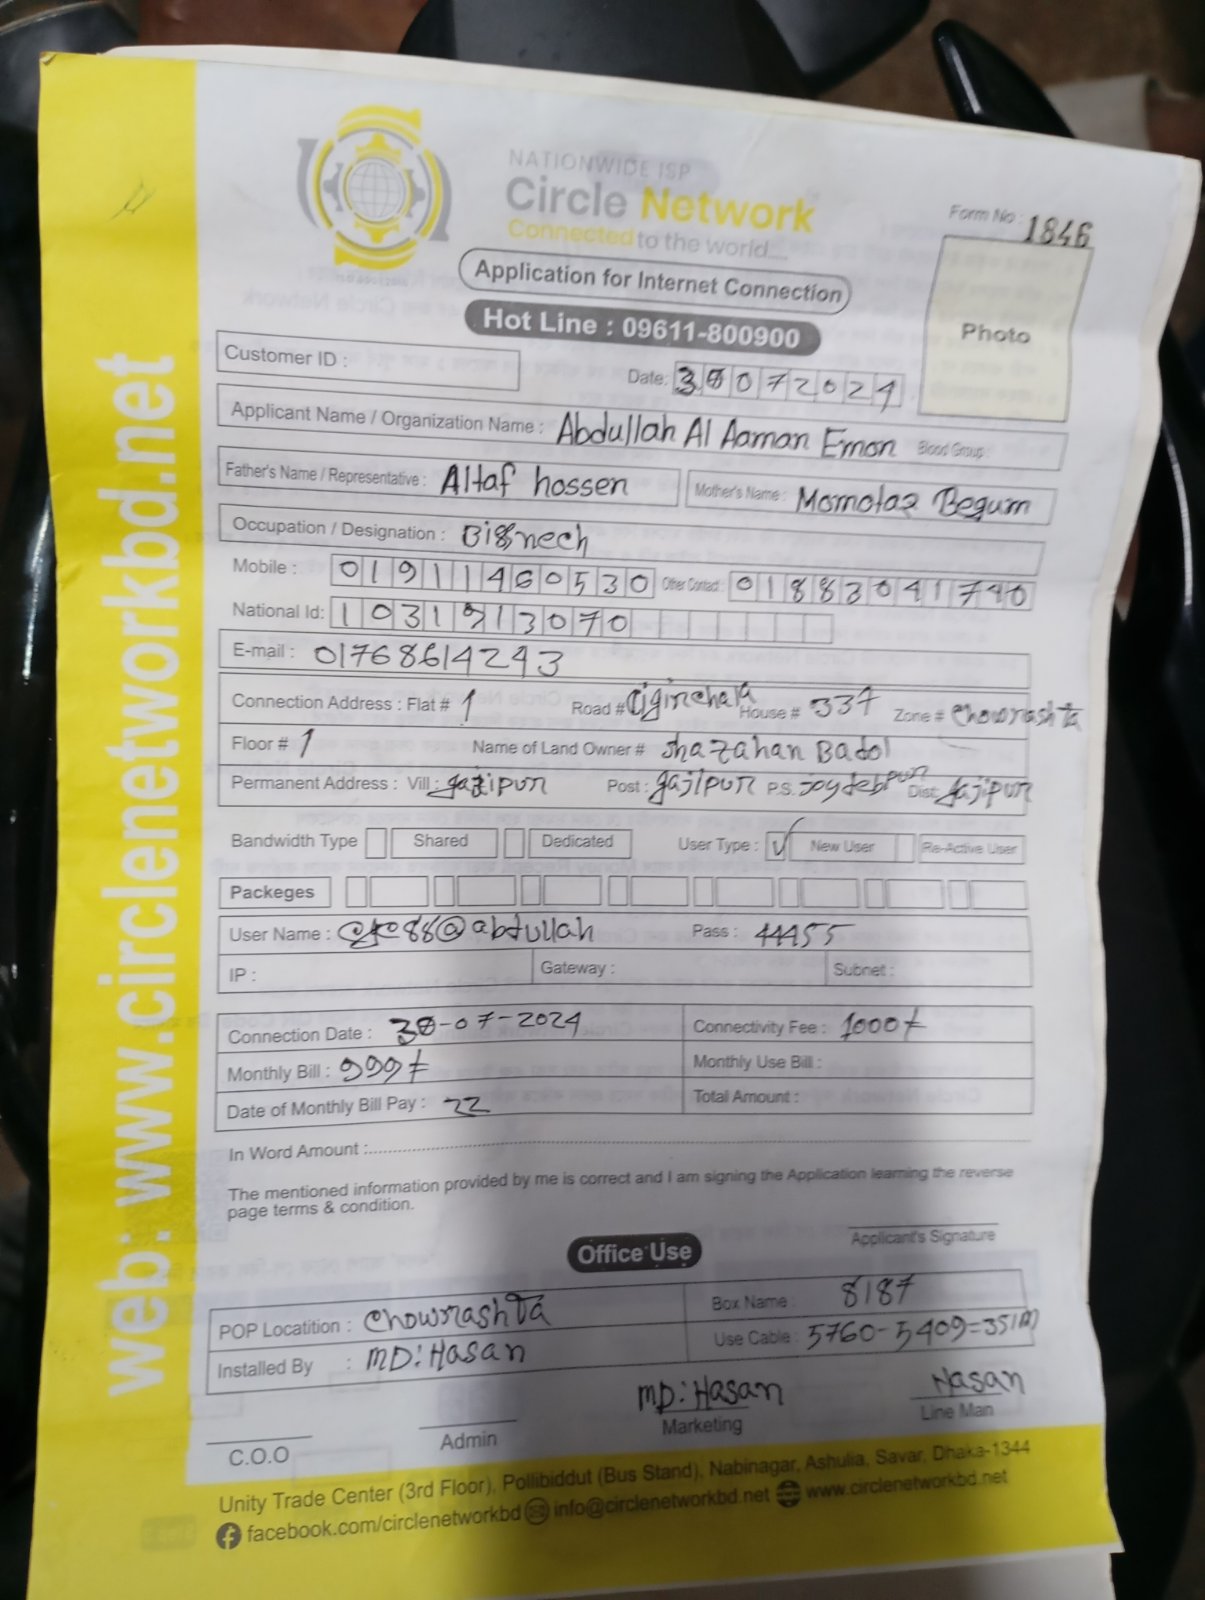 NATIONWIDE ISP
Circle Network
Connected to the world....
Form No : 1846
Application for Internet Connection
Photo
Hot Line : 09611-800900
Customer ID :
Date: 30072024
Applicant Name / Organization Name : Abdullah Al Aaman Emon Blood Group :
Father's Name / Representative : Altaf hossen Mother's Name : Momotaz Begum
Occupation / Designation :
Mobile : 01911460530 Other Contact : 01883041740
National Id: 1031913070
E-mail : 01768614243
Connection Address : Flat # 1 Road # House # 337 Zone # chowrashta
Floor # 1 Name of Land Owner # shazahan Badol
Permanent Address : Vill : gazipur Post : gajipur P.S. joydebpur Dist: gajipur
Bandwidth Type Shared Dedicated User Type : New User Re-Active User
Packeges
User Name : Pass : 44455
IP : Gateway : Subnet :
Connection Date : 30-07-2024 Connectivity Fee : 1000/
Monthly Bill : 999/ Monthly Use Bill :
Date of Monthly Bill Pay : 22 Total Amount :
In Word Amount :
The mentioned information provided by me is correct and I am signing the Application learning the reverse
page terms & condition.
Applicant's Signature
Office Use
POP Locatition : chowrashta Box Name : 8187
Installed By : MD:Hasan Use Cable : 5760-5409=351(M)
MD:Hasan Hasan
C.O.O Admin Marketing Line Man
Unity Trade Center (3rd Floor), Pollibiddut (Bus Stand), Nabinagar, Ashulia, Savar, Dhaka-1344
facebook.com/circlenetworkbd info@circlenetworkbd.net www.circlenetworkbd.net
web: www.circlenetworkbd.net